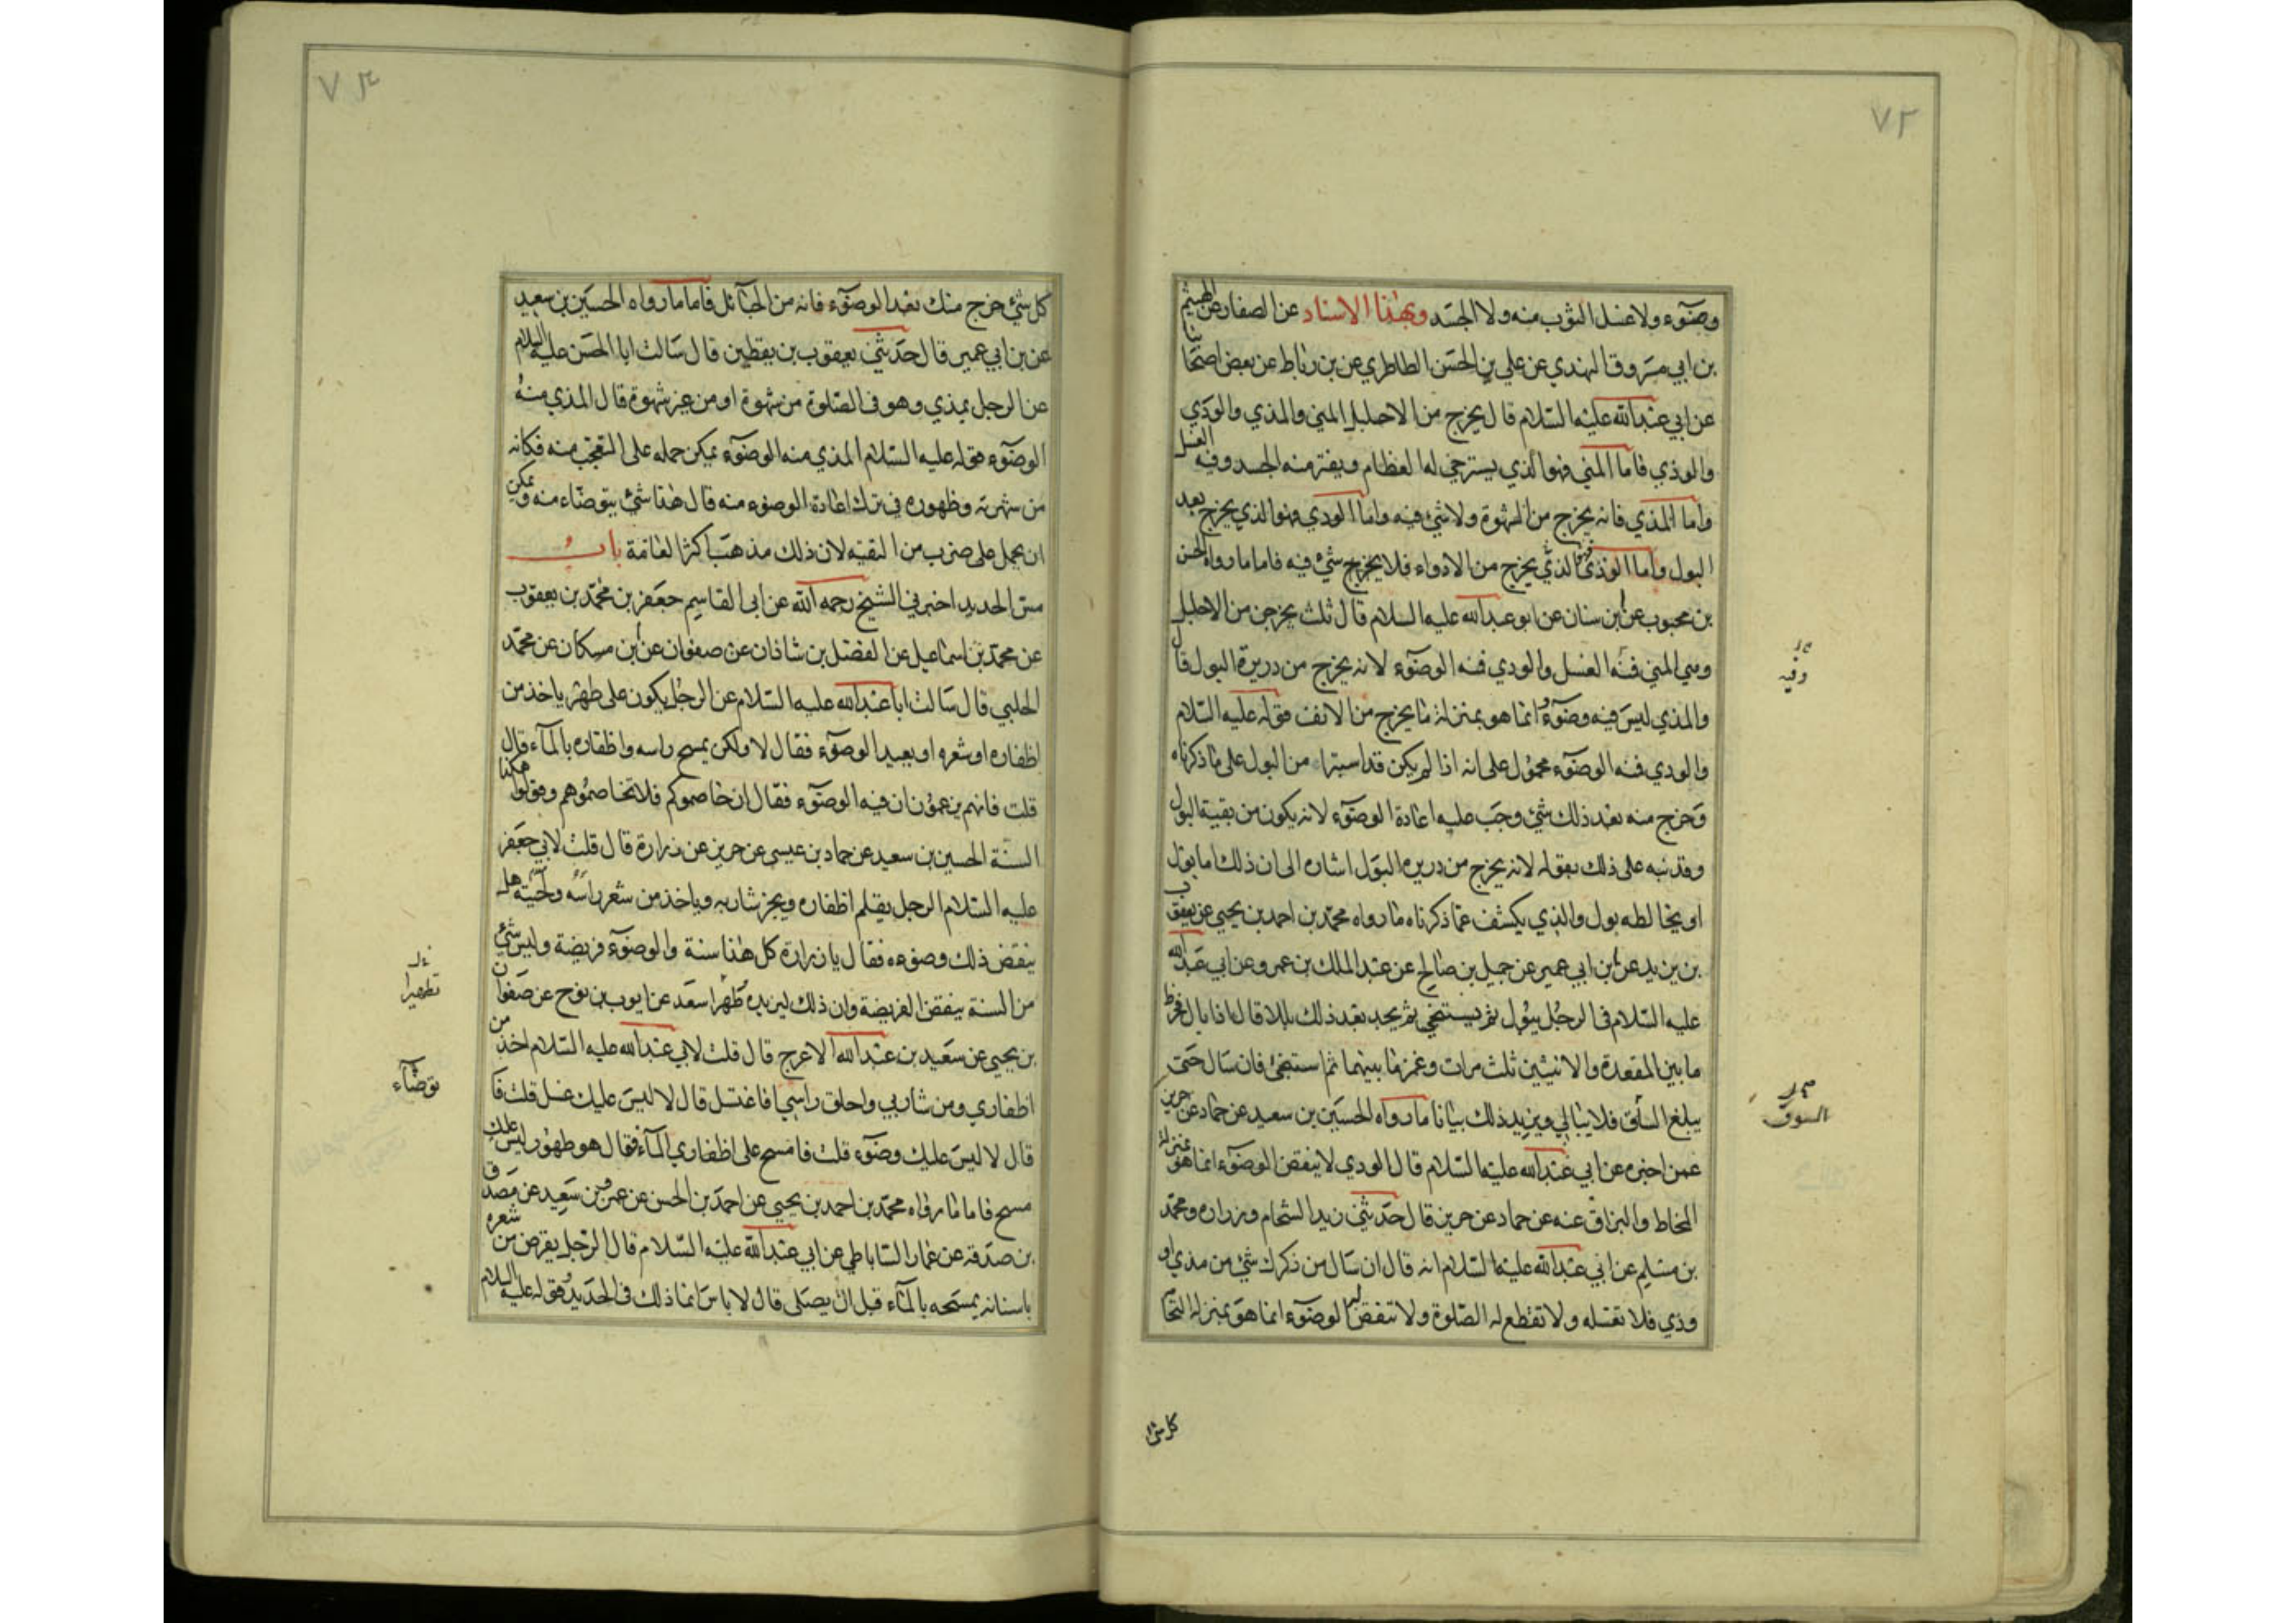 ٧٢
وضوء ولا غسل الثوب منه ولا الجسد وبهذا الاسناد عن الصفار عن الهيثم
بن ابي مسروق النهدي عن علي بن الحسن الطاطري عن بن رباط عن بعض اصحابنا
عن ابي عبد الله عليه السلام قال يخرج من الاحليل المني والمذي والودي
والوذي فاما المني فهو الذي يسترخي له العظام ويفتر منه الجسد وفيه الغسل
واما المذي فانه يخرج من الشهوة ولا شئ فيه واما الودي فهو الذي يخرج بعد
البول واما الوذي فهو الذي يخرج من الادواء فلا يخرج شئ فيه فاما ما رواه الحسن
بن محبوب عن ابن سنان عن ابو عبد الله عليه السلام قال ثلث يخرجن من الاحليل
وهي المني فمنه الغسل والودي فمنه الوضوء لانه يخرج من دريرة البول قال
والمذي ليس فيه وضوء وانما هو بمنزلة ما يخرج من الانف فقوله عليه السلام
والودي فمنه الوضوء محمول على انه اذا لم يكن قد استبراء من البول على ما ذكرناه
وخرج منه بعد ذلك شئ وجب عليه اعادة الوضوء لانه يكون من بقية البول
وقد نبه على ذلك بقوله لانه يخرج من دريرة البول اشاره الى ان ذلك اما بول
او يخالطه بول والذي يكشف عما ذكرناه ما رواه محمد بن احمد بن يحيى عن يعقوب
بن يزيد عن ابن ابي عمير عن جميل بن صالح عن عبد الملك بن عمرو عن ابي عبد الله
عليه السلام في الرجل يبول ثم يستنجي ثم يجد بعد ذلك بللا قال اذا بال فخرط
ما بين المقعدة والانثيين ثلث مرات وغمز ما بينهما ثم استنجى فان سال حتى
يبلغ الساق فلا يبالي ويزيد ذلك بيانا ما رواه الحسين بن سعيد عن حماد عن حريز
عمن اخبره عن ابي عبد الله عليه السلام قال الودي لا ينقض الوضوء انما هو بمنزلة
المخاط والبزاق عنه عن حماد عن حريز قال حدثني زيد الشحام وزراره ومحمد
بن مسلم عن ابي عبد الله عليه السلام انه قال ان سال من ذكرك شئ من مذي او
وذي فلا تغسله ولا تقطع له الصلوة ولا تنقض له الوضوء انما هو بمنزلة النخا
وفيه
السوق
كل شئ
٧٣
كل شئ خرج منك بعد الوضوء فانه من الحبائل فاما ما رواه الحسين بن سعيد
عن بن ابي عمير قال حدثني يعقوب بن يقطين قال سالت ابا الحسن عليه السلام
عن الرجل يمذي وهو في الصلوة من شهوة او من غير شهوة قال المذي منه
الوضوء فقوله عليه السلام المذي منه الوضوء يمكن حمله على التعجب منه فكانه
من شهرته وظهوره في ترك اعادة الوضوء منه قال هذا شئ يتوضاء منه ويمكن
ان يحمل على ضرب من التقيه لان ذلك مذهب اكثر العامة باب
مس الحديد اخبرني الشيخ رحمه الله عن ابي القاسم جعفر بن محمد بن يعقوب
عن محمد بن اسماعيل عن الفضل بن شاذان عن صفوان عن ابن مسكان عن محمد
الحلبي قال سالت ابا عبد الله عليه السلام عن الرجل يكون على طهر ياخذ من
اظفاره او شعره او يعيد الوضوء فقال لا ولكن يمسح راسه واظفاره بالماء قال
قلت فانهم يزعمون ان فيه الوضوء فقال ان خاصموكم فلا تخاصموهم وقولوا هكذا
السنة الحسين بن سعيد عن حماد بن عيسى عن حريز عن زرارة قال قلت لابي جعفر
عليه السلام الرجل يقلم اظفاره ويجز شاربه وياخذ من شعر راسه ولحيته هل
ينقض ذلك وضوءه فقال يا زرارة كل هذا سنة والوضوء فريضة وليس شئ
من السنة ينقض الفريضة وان ذلك ليزيده طهرا سعد عن ايوب بن نوح عن صفوان
بن يحيى عن سعيد بن عبد الله الاعرج قال قلت لابي عبد الله عليه السلام اخذ من
اظفاري ومن شاربي واحلق راسي افاغتسل قال لا ليس عليك غسل قلت فا
قال لا ليس عليك وضوء قلت فامسح على اظفاري الماء فقال هو طهور ليس عليك
مسح فاما ما رواه محمد بن احمد بن يحيى عن احمد بن الحسن عن عمرو بن سعيد عن مصدق
بن صدقه عن عمار الساباطي عن ابي عبد الله عليه السلام قال الرجل يقرض من شعره
باسنانه يمسحه بالماء قبل ان يصلي قال لا باس انما ذلك في الحديد فقوله عليه السلام
تطهيرا
توضاء